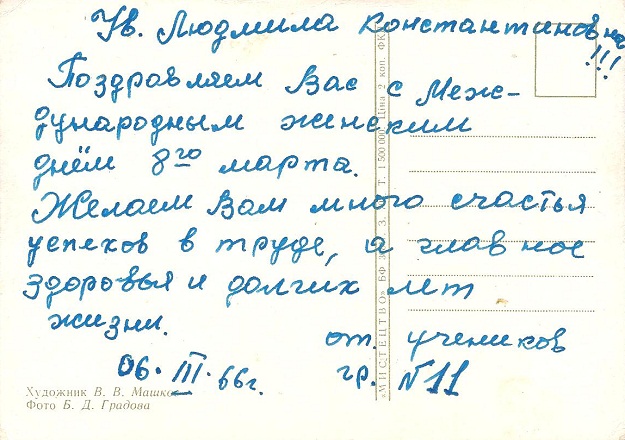 Ув. Людмила Константиновна
!!!
Поздравляем Вас с Меж-
дународным женским
днём 8го марта.
Желаем Вам много счастья
успехов в труде, а главное
здоровья и долгих лет
жизни.
от учеников
06. III. 66г.
гр. N11
Художник В. В. Машков
Фото Б. Д. Градова
„МИСТЕЦТВО“ БФ З. Т. 1 500 000. Ціна 2 коп. ФК